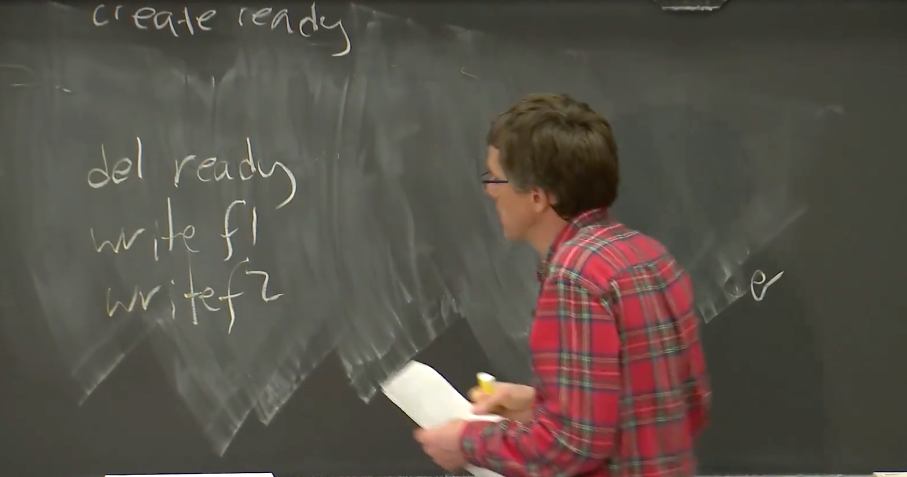 create ready
del ready
write f1
write f2
e